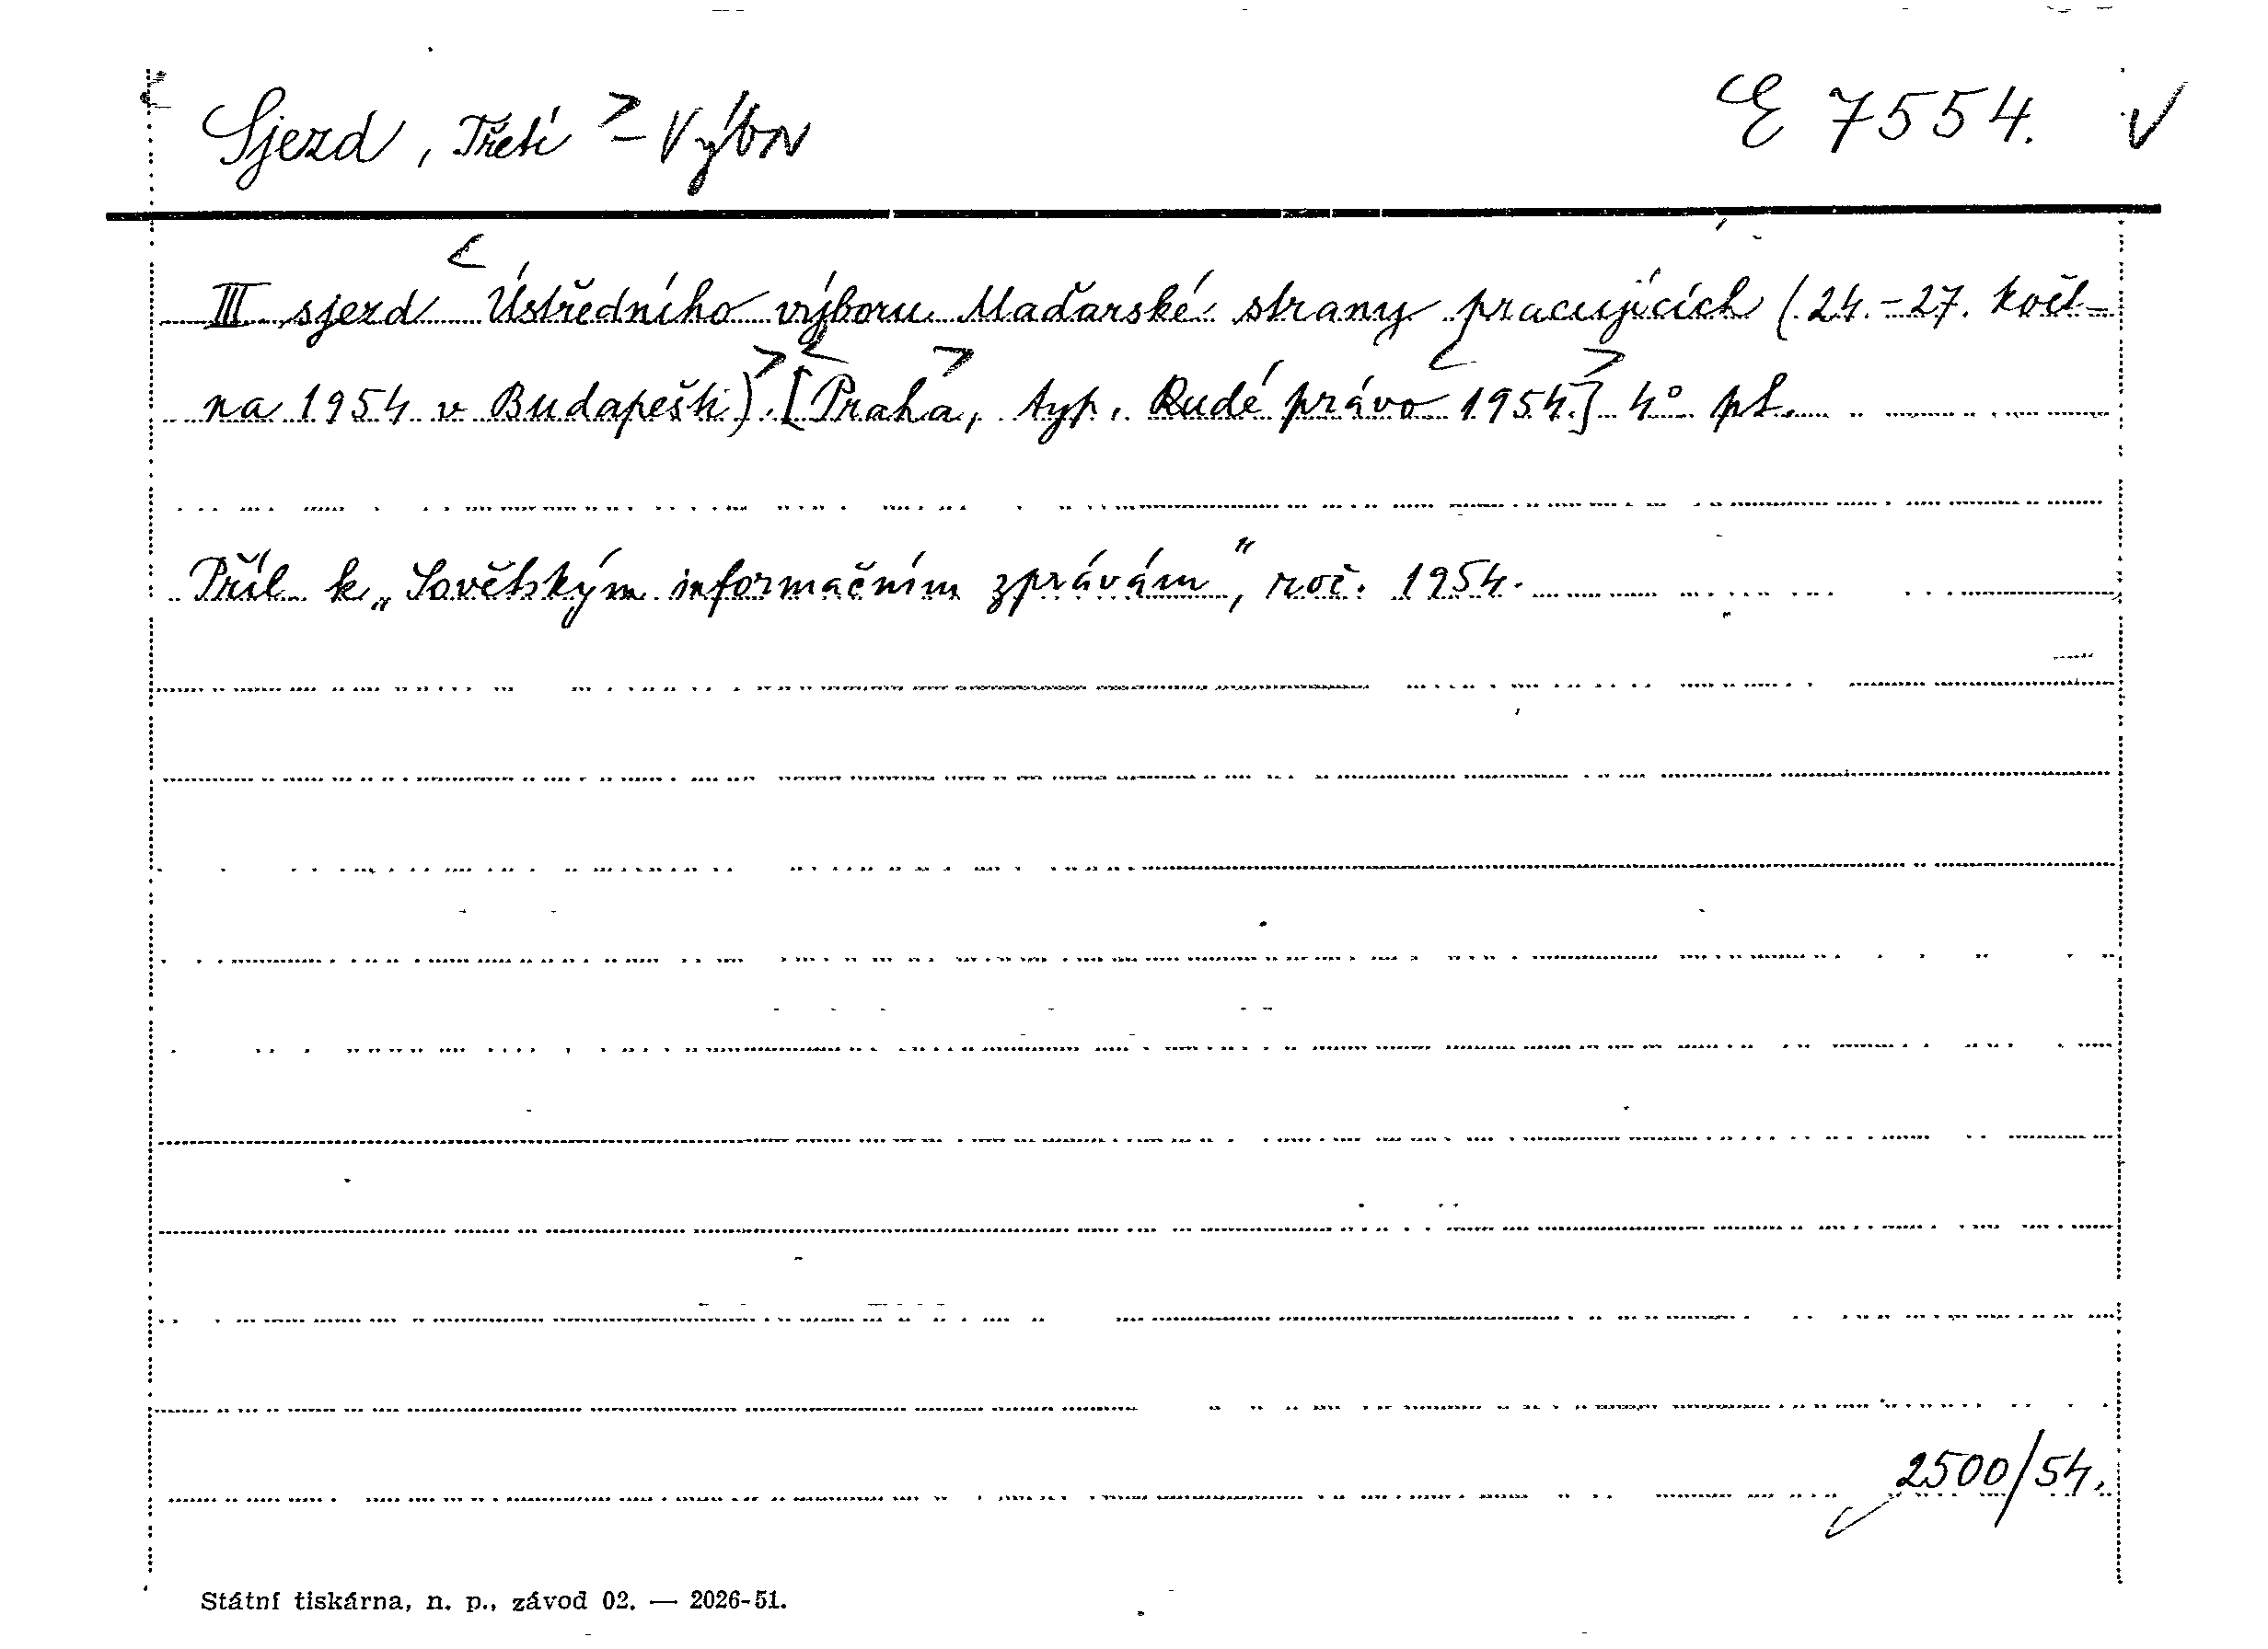 Sjezd, Třetí - Výbor E 7554.
III. sjezd Ústředního výboru Maďarské strany pracujících (24.-27. květ-
na 1954 v Budapešti). [Praha, typ. Rudé právo 1954.] 4° pl.
Příl. k „Sovětským informačním zprávám", roč. 1954.
2500/54.
Státní tiskárna, n. p., závod 02. — 2026-51.